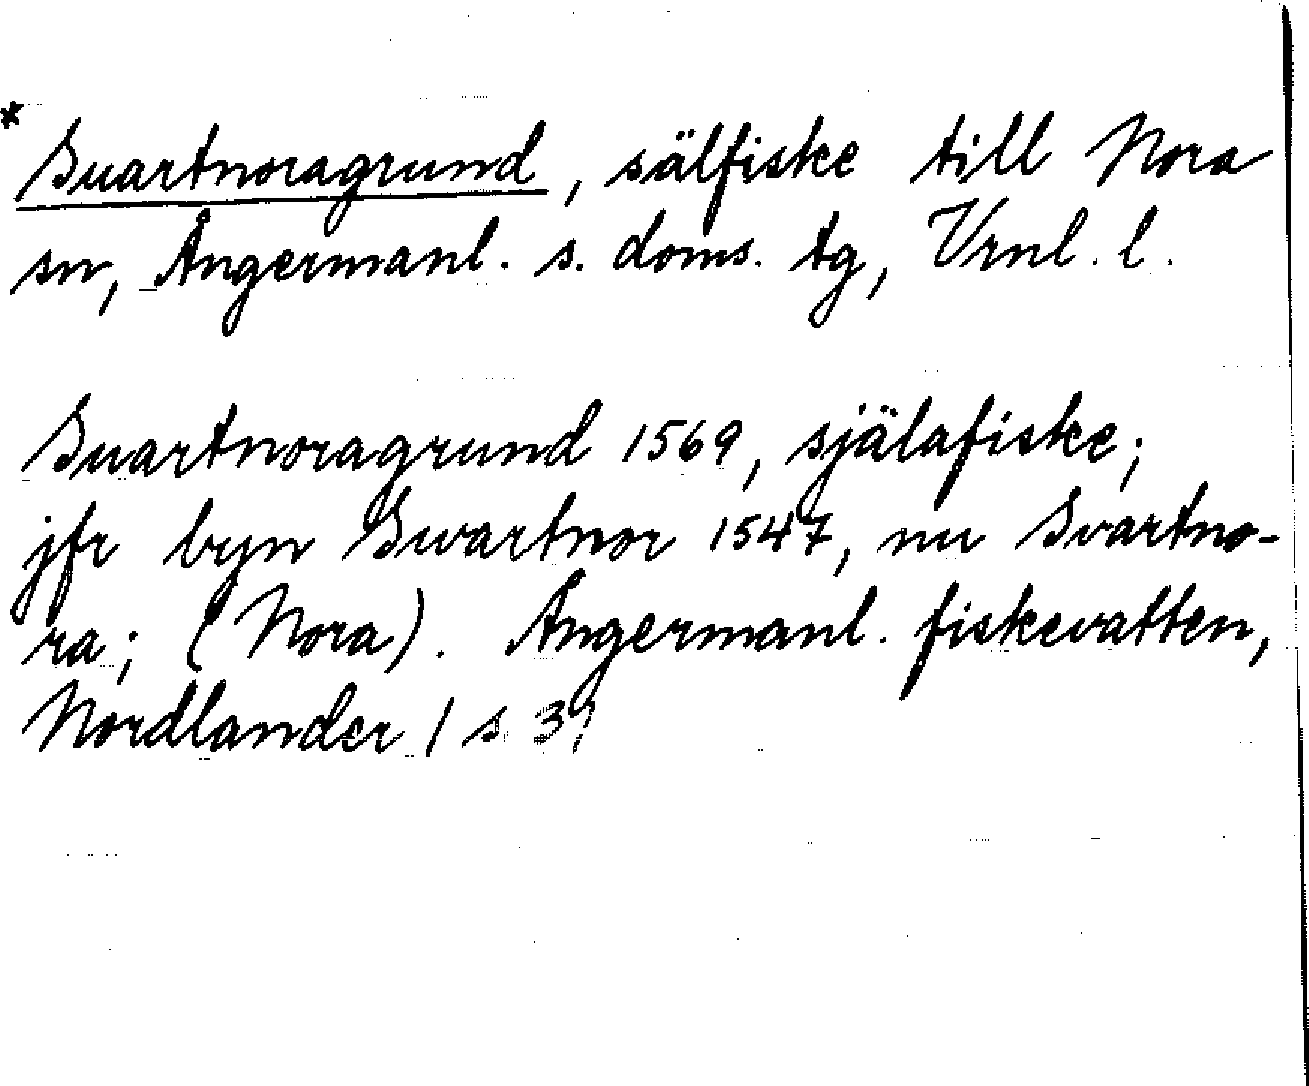 * Suartnoragrund, sälfiske till Nora
sn, Ångermanl. s. doms. tg, Vrnl. l.
Suartnoragrund 1569, själafiske;
jfr byn Swartnor 1547, nu Svartno-
ra; (Nora). Ångermanl. fiskevatten,
Nordlander / s